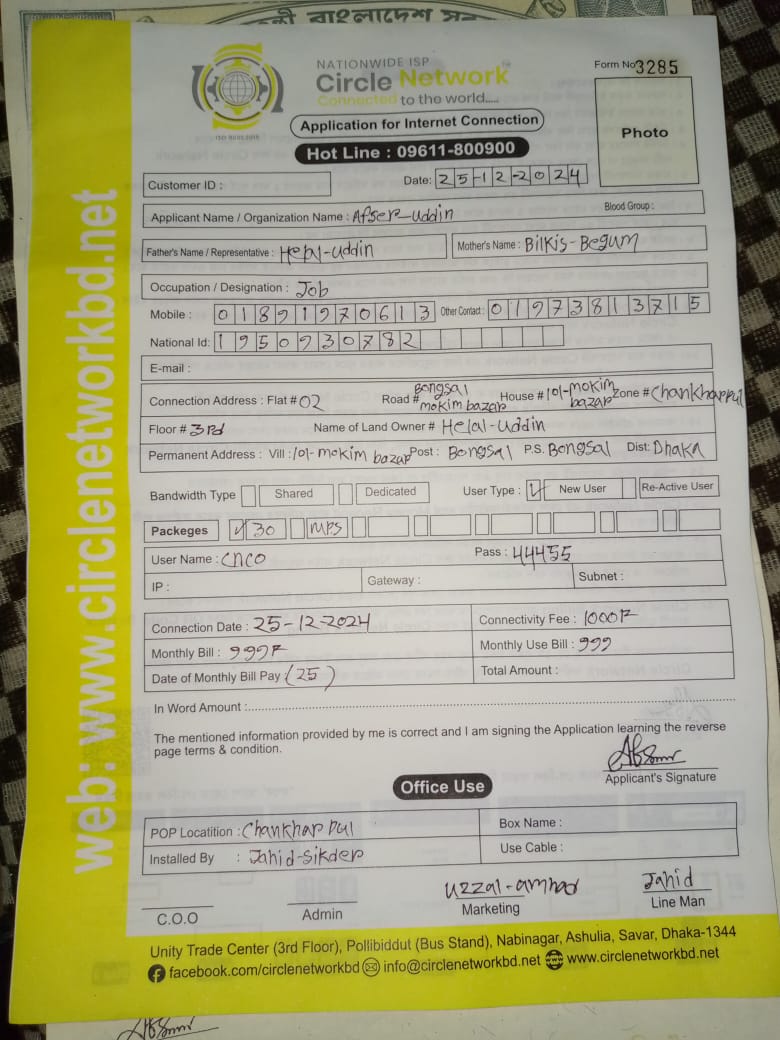 NATIONWIDE ISP
Circle Network
Connected to the world.....
ISO 9001:2015
Form No 3285
Photo
Application for Internet Connection
Hot Line : 09611-800900
Customer ID :
Date: 25-12-2024
Applicant Name / Organization Name : Afser-uddin Blood Group :
Father's Name / Representative : Helal-uddin Mother's Name : Bilkis-Begum
Occupation / Designation : Job
Mobile : 01891970613 Other Contact : 01973813715
National Id: 1950930782
E-mail :
Connection Address : Flat # 02 Road # Bongsal mokim bazar House # 101-mokim bazar Zone # Chankharpul
Floor # 3rd Name of Land Owner # Helal-uddin
Permanent Address : Vill : 101-mokim bazar Post : Bongsal P.S. Bongsal Dist: Dhaka
Bandwidth Type Shared Dedicated User Type : ✓ New User Re-Active User
Packeges ✓ 30 MPS
User Name : cnco Pass : 44455
IP : Gateway : Subnet :
Connection Date : 25-12-2024 Connectivity Fee : 1000৳
Monthly Bill : 999৳ Monthly Use Bill : 999
Date of Monthly Bill Pay : (25) Total Amount :
In Word Amount :
The mentioned information provided by me is correct and I am signing the Application learning the reverse
page terms & condition.
Applicant's Signature
Office Use
POP Locatition : Chankhar pul Box Name :
Installed By : Jahid-Sikder Use Cable :
uzzal-amhad Jahid
C.O.O Admin Marketing Line Man
Unity Trade Center (3rd Floor), Pollibiddut (Bus Stand), Nabinagar, Ashulia, Savar, Dhaka-1344
facebook.com/circlenetworkbd info@circlenetworkbd.net www.circlenetworkbd.net
web: www.circlenetworkbd.net